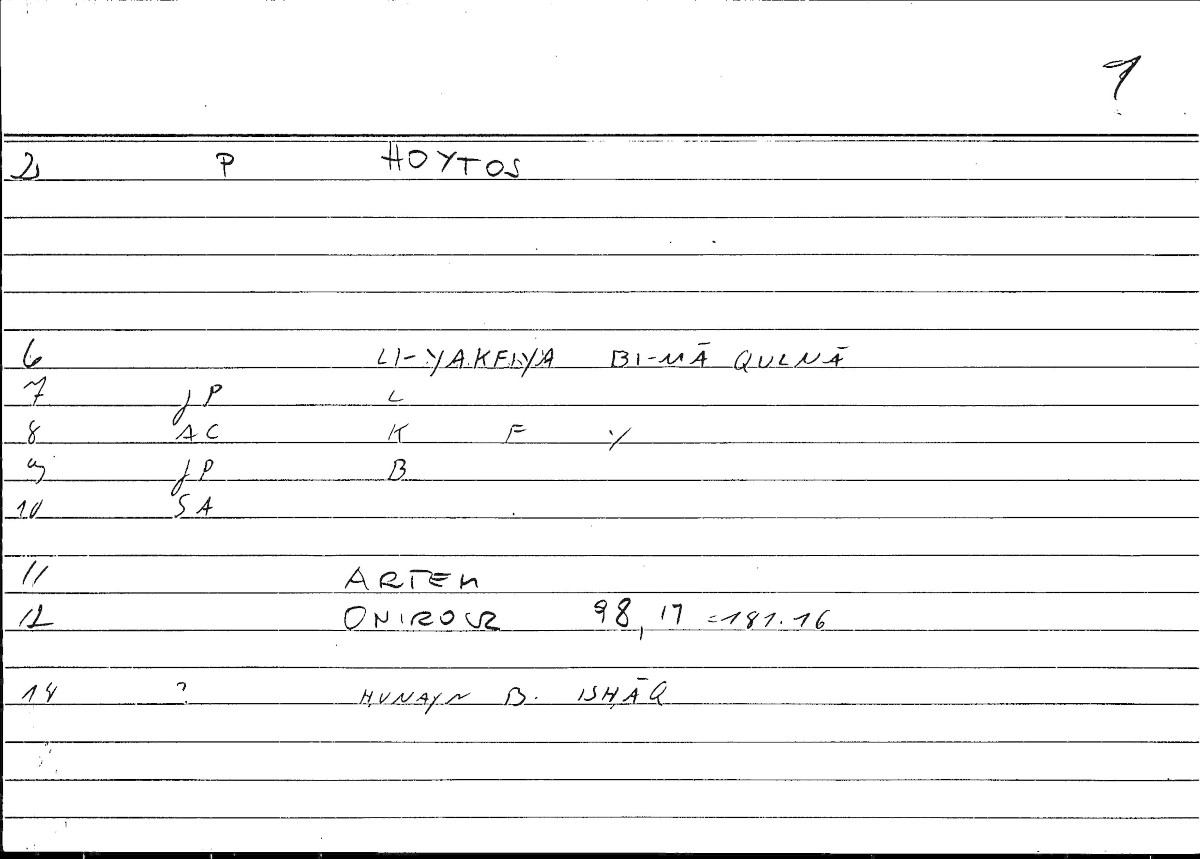 1
2 P HOYTOS
6 LI-YAKFIYA BI-MĀ QULNĀ
7 JP L
8 AC K F Y
9 JP B
10 SA
11 ARTEM
12 ONIROCR 98,17 =181.16
14 ? ḤUNAYN B. ISḤĀQ